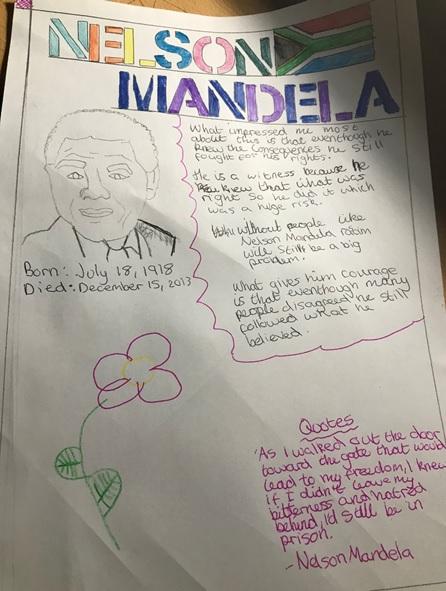 NELSON
MANDELA
What impressed me most
about this is that eventhough he
knew the consequences he still
fought for his rights.
He is a witness because he
knew that what was
right so he did it which
was a huge risk.
without people like
Nelson Mandela
will still be a big
problem.
What gives him courage
is that eventhough many
people disagreed he still
followed what he
believed.
Born: July 18, 1918
Died: December 15, 2013
Quotes
"As I walked out the door
toward the gate that would
lead to my freedom, I knew
if I didn't leave my
bitterness and hatred
behind, I'd still be in
prison.
- Nelson Mandela